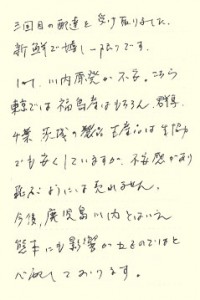 三回目の配達を受け取りました。
新鮮で嬉しい限りです。
川内原発が不安。こちら
東京では福島産はもちろん、群馬
千葉 茨城の製品 生産品は生協
でも安くしていますが、不安感があり
飛ぶようには売れません。
今後、鹿児島川内とはいえ
熊本にも影響が出るのではと
心配しております。